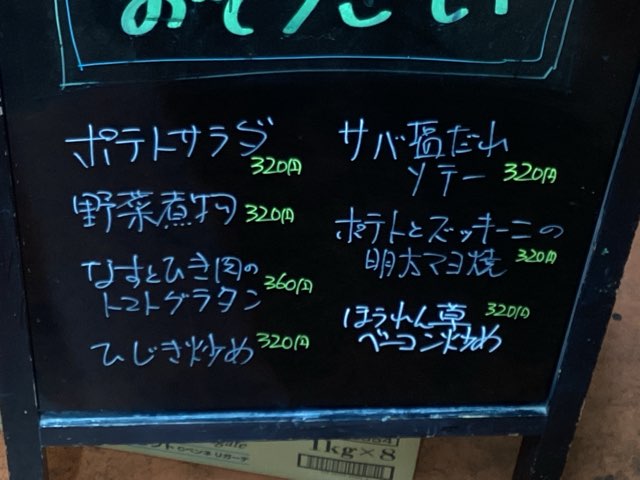 おそうざい
ポテトサラダ
320円
野菜煮物 320円
なすとひき肉の
トマトグラタン 360円
ひじき炒め 320円
サバ塩だれ
ソテー 320円
ポテトとズッキーニの
明太マヨ焼 320円
ほうれん草 320円
ベーコン炒め
1kg×8